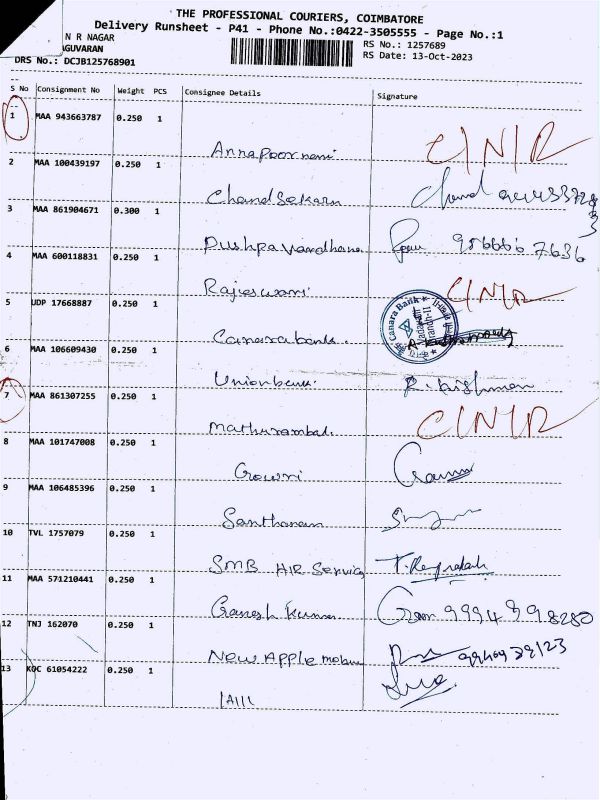 THE PROFESSIONAL COURIERS, COIMBATORE
Delivery Runsheet - P41 - Phone No.:0422-3505555 - Page No.:1
N R NAGAR RS No.: 1257689
AGUVARAN RS Date: 13-Oct-2023
DRS No.: DCJB125768901
S No Consignment No Weight PCS Consignee Details Signature
1 MAA 943663787 0.250 1
Annapoornani C/N/R
2 MAA 100439197 0.250 1
Chandsekarn
3 MAA 861904671 0.300 1
Pushpavardhana 986666 7636
4 MAA 600118831 0.250 1
Rajieswari C/N/R
5 UDP 17668887 0.250 1
Canarabank. Canara Bank
6 MAA 106609430 0.250 1
Unionbank. R. krishnan
7 MAA 861307255 0.250 1
Mathurambal. C/N/R
8 MAA 101747008 0.250 1
Gowri
9 MAA 106485396 0.250 1
Santhanam
10 TVL 1757079 0.250 1
SMB AIR Service
11 MAA 571210441 0.250 1
Ganesh kumar 9994898280
12 TNJ 162070 0.250 1
New Apple mobile
13 KOC 61054222 0.250 1